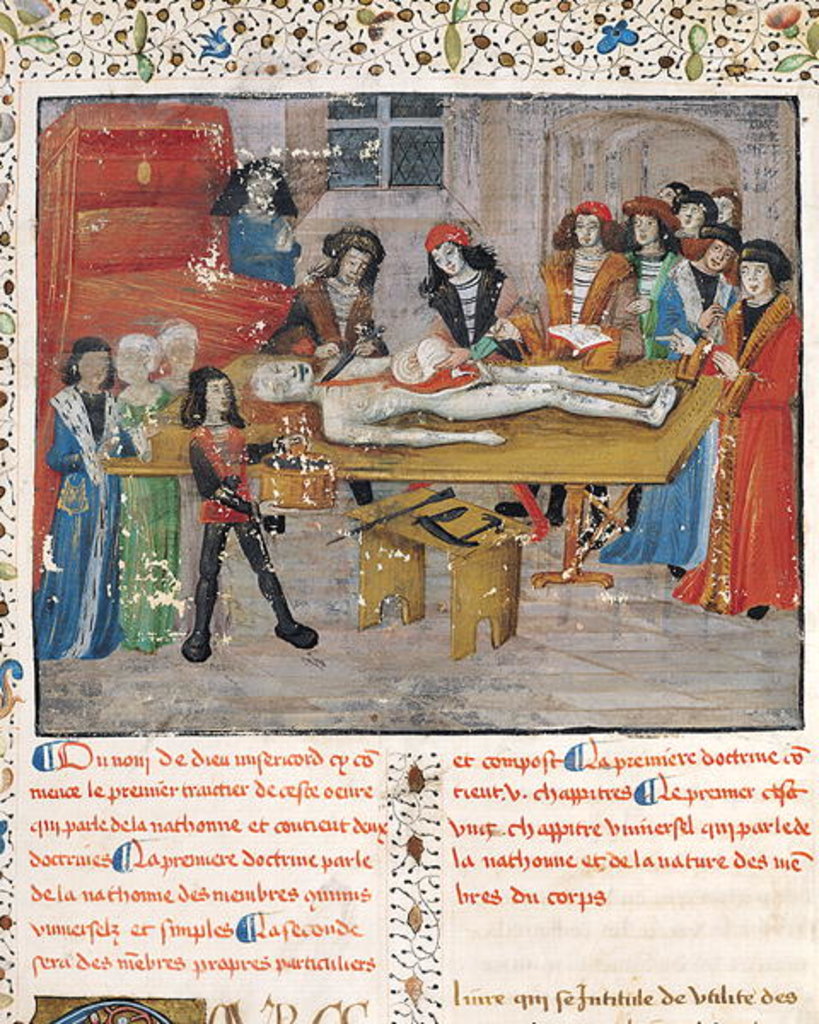 Du nom de dieu misericord cy cō
mence le premier traictier de ceste oeuure
qui parle de la nathomie et contient deux
doctrines La premiere doctrine parle
de la nathomie des membres quimis
vniuerselz et simples La seconde
sera des mēbres propres particuliers
et compost La premiere doctrine cō
tient .v. chappitres Le premier cest
vng chappitre vniuersel qui parle de
la nathomie et de la nature des mē
bres du corps
liure qui se Intitule de vtilite des